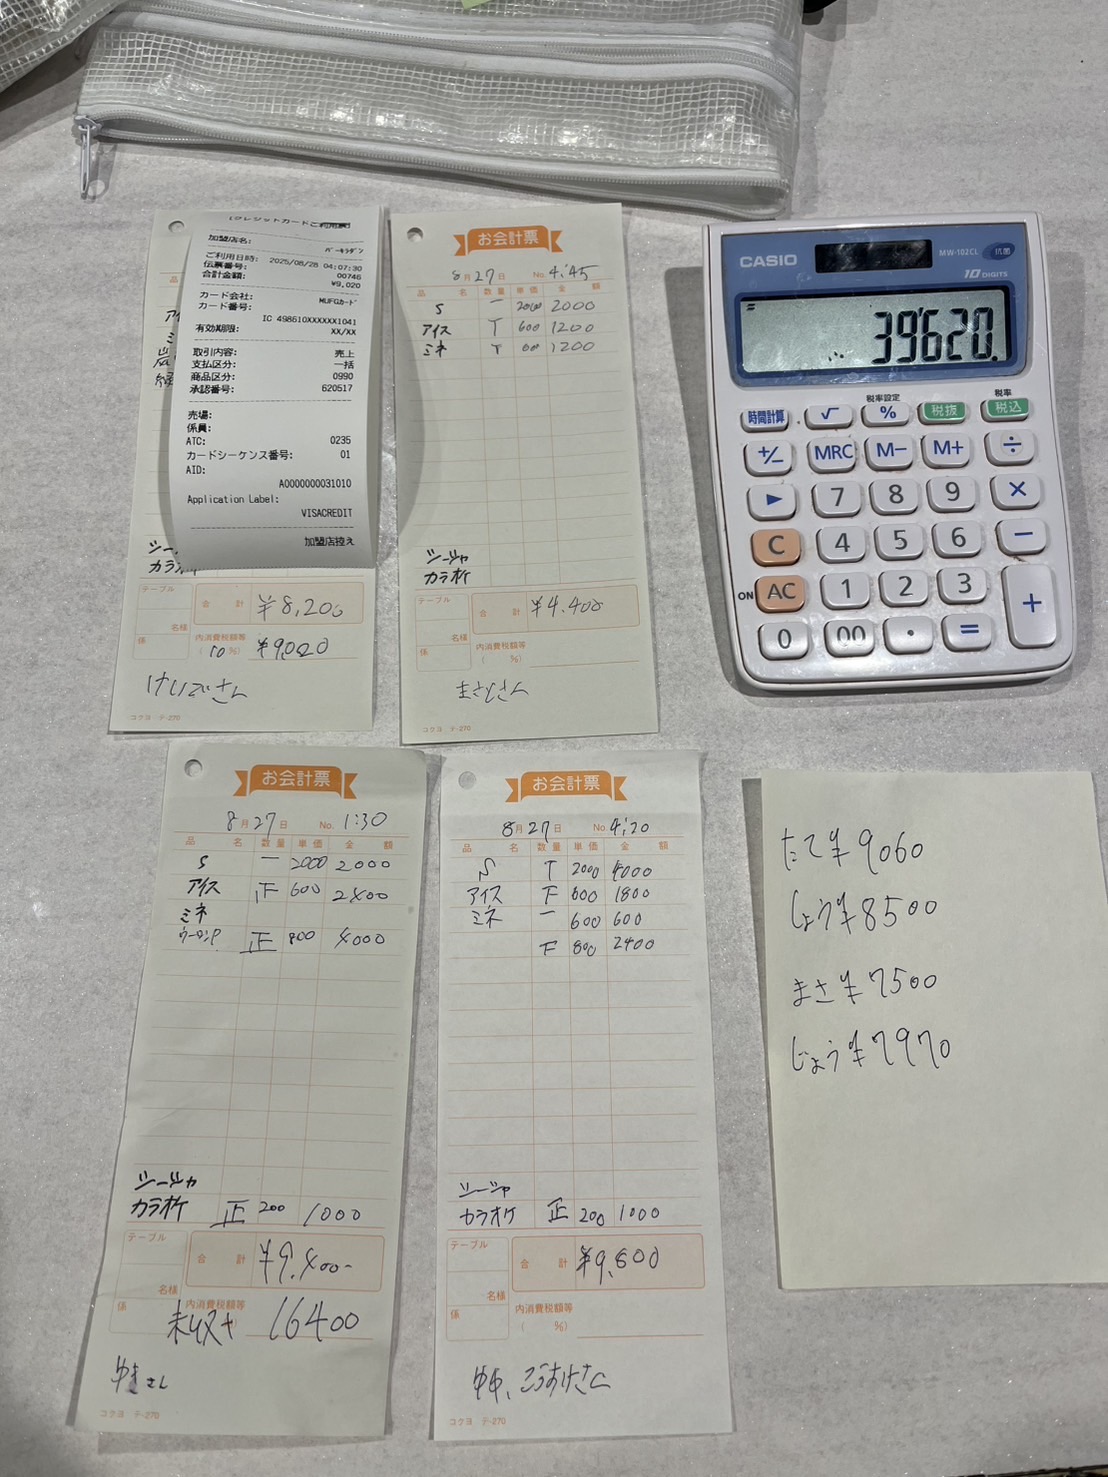 [クレジットカードご利用票]
加盟店名:
バーキヨダン
ご利用日時: 2025/08/28 04:07:30
伝票番号: 00746
合計金額: ¥9,020
カード会社: MUFGカード
カード番号:
IC 498610XXXXXX1041
有効期限: XX/XX
取引内容: 売上
支払区分: 一括
商品区分: 0990
承認番号: 620517
売場:
係員:
ATC: 0235
カードシーケンス番号: 01
AID:
A0000000031010
Application Label:
VISACREDIT
加盟店控え
品
シー
カラオケ
テーブル
名様
係
合計 ¥8,200
内消費税額等
(10%) ¥9020
コクヨ テ-270
お会計票
8月27日 No. 4:45
品名 数量 単価 金額
S 一 2000 2000
アイス T 600 1200
ミネ T 600 1200
シーシャ
カラオケ
テーブル
名様
係
合計 ¥4.400
内消費税額等
( %)
まさとさん
コクヨ テ-270
CASIO
MW-102CL 抗菌
10 DIGITS
39'620.
税率設定 税率
時間計算 √ % 税抜 税込
+/− MRC M− M+ ÷
▶ 7 8 9 ×
C 4 5 6 −
ON AC 1 2 3 +
0 00 · =
お会計票
8月27日 No. 1:30
品名 数量 単価 金額
S 一 2000 2000
アイス 正 600 2400
ミネ
ウーロンP 正 800 4000
シーシャ
カラオケ 正 200 1000
テーブル
名様
係
合計 ¥9,400-
内消費税額等
未収+ 16400
ゆきさん
コクヨ テ-270
お会計票
8月27日 No. 4:20
品名 数量 単価 金額
S T 2000 4000
アイス 下 600 1800
ミネ 一 600 600
下 800 2400
シーシャ
カラオケ 正 200 1000
テーブル
名様
係
合計 ¥9,800
内消費税額等
( %)
こうすけさん
コクヨ テ-270
たて¥9060
しょう¥8500
まさ¥7500
じょう¥7970